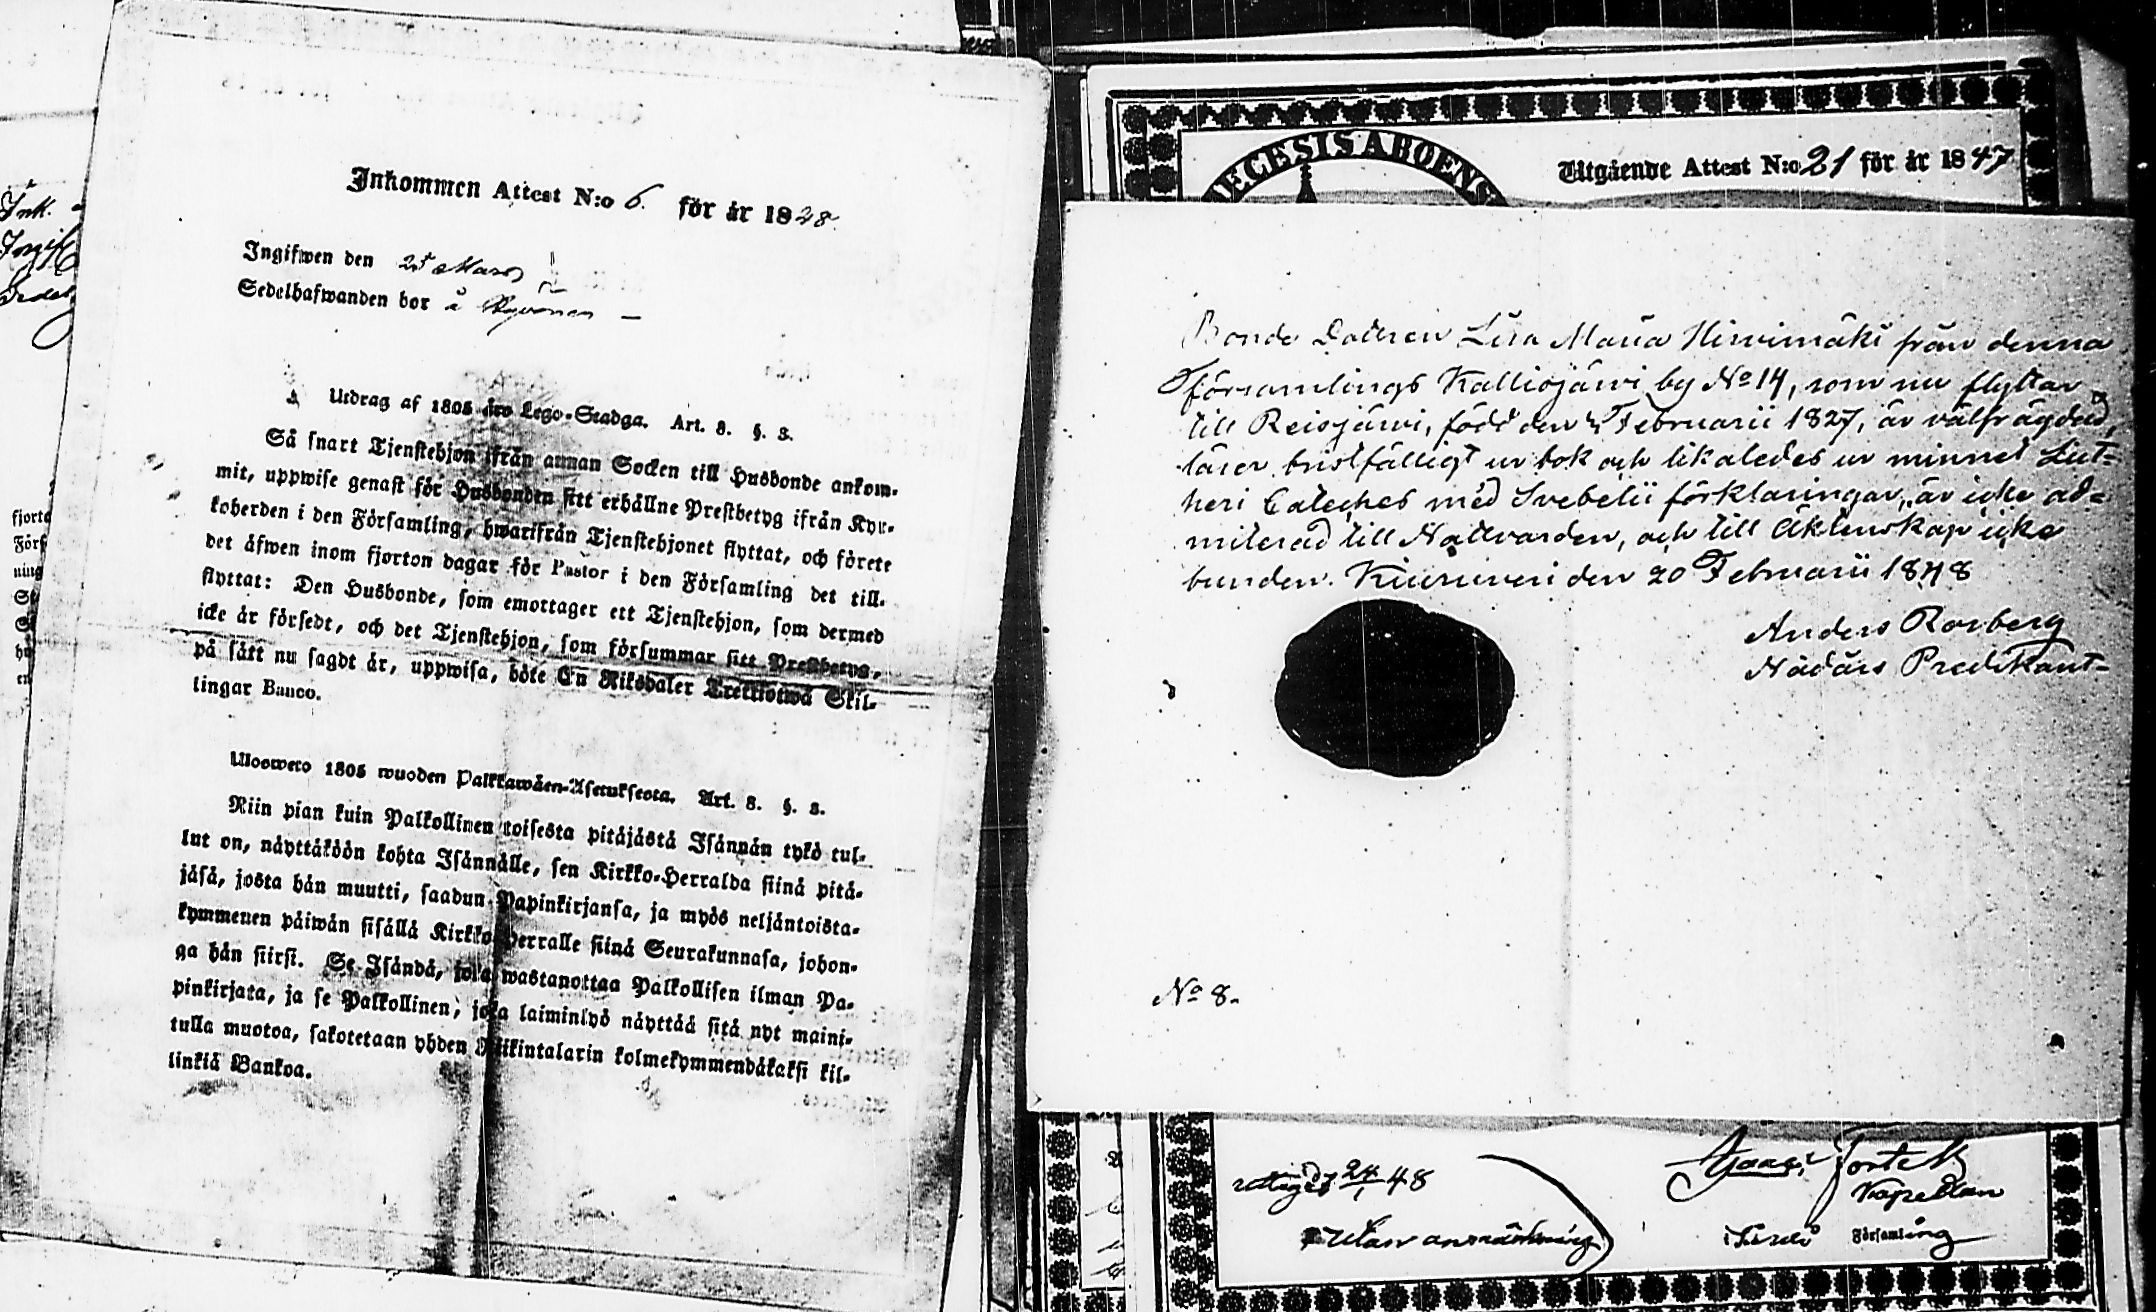 Ink.
Inkommen Attest N:o 6. för år 1828.
Ingifwen den 25 Mars
Sedelhafwanden bor å
Utdrag af 1805 års Lego-Stadga. Art. 8. §. 3.
Så snart Tjenstehjon ifrån annan Socken till Husbonde ankom-
mit, uppwise genast för Husbonden sitt erhållne Prestbetyg ifrån Kyr-
koherden i den Församling, hwarifrån Tjenstehjonet flyttat, och förete
det äfwen inom fjorton dagar för Pastor i den Församling det till-
flyttat: Den Husbonde, som emottager ett Tjenstehjon, som dermed
icke är försedt, och det Tjenstehjon, som försummar sitt Prestbetyg,
på sätt nu sagdt är, uppwisa, böte En Riksdaler Trettiotwå Skil-
lingar Banco.
Ulosweto 1805 wuoden Palkkawäen-Asetuksesta. Art. 8. §. 3.
Niin pian kuin Palkollinen toisesta pitäjästä Isännän tykö tul-
lut on, näyttäköön kohta Isännälle, sen Kirkko-Herralda siinä pitä-
jäsä, josta hän muutti, saadun Papinkirjansa, ja myös neljäntoista-
kymmenen päiwän sisällä Kirkko-Herralle siinä Seurakunnasa, johon-
ga hän siirsi. Se Isändä, joka wastanottaa Palkollisen ilman Pa-
pinkirjata, ja se Palkollinen, joka laiminlyö näyttää sitä nyt maini-
tulla muotoa, sakotetaan yhden Riikintalarin kolmekymmendäkaksi kil-
linkiä Bankoa.
fjorto
Förs
ning
ECESIS ABOENS
Utgående Attest N:o 21 för år 1847
Bonde Dottren Lisa Maria Hirvimäki från denna
församlings Kalliojärvi by No 14, som nu flyttar
till Reisjärvi, född den 4 Februarii 1827, är välfrägdad,
läser bristfälligt ur bok och likaledes ur minnet Lut-
heri Cateches med Svebelii förklaringar, är icke ad-
mitterad till Nattvarden, och till Äktenskap icke
bunden. Kiuruvesi den 20 Februarii 1848
Anders Rosberg
Nådårs Predikant
No 8.
24 48
Kapellan
Utan anmärkning
Församling